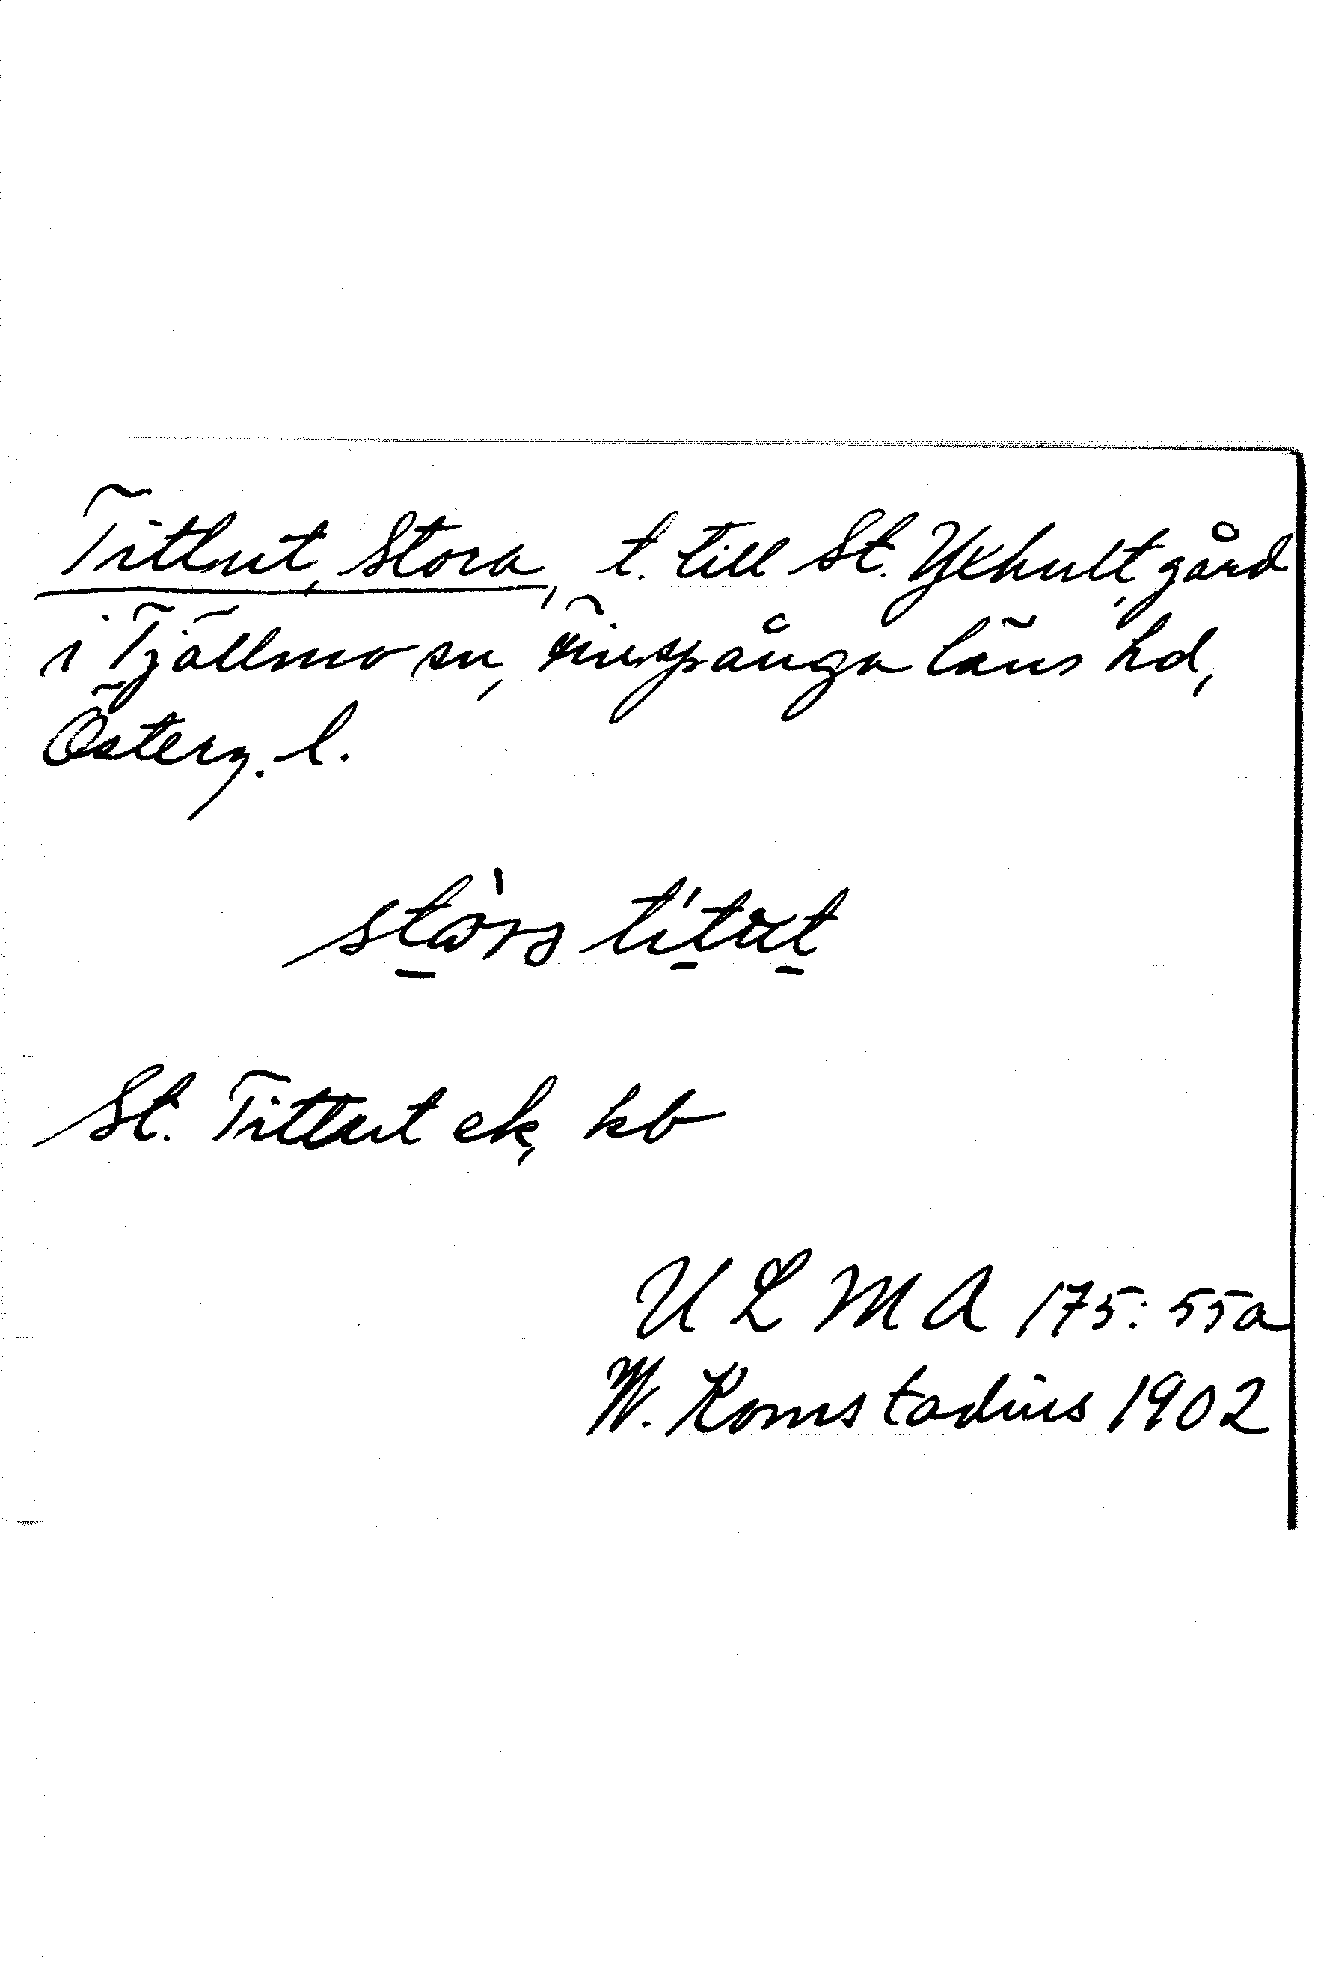 Tittut, Stora, t. till St. Ykhult, gård
i Tjällmo sn, Finspånga läns hd,
Österg. l.
St. Tittut ek, kb
U L M A 175: 55a
W. Kornstadius 1902